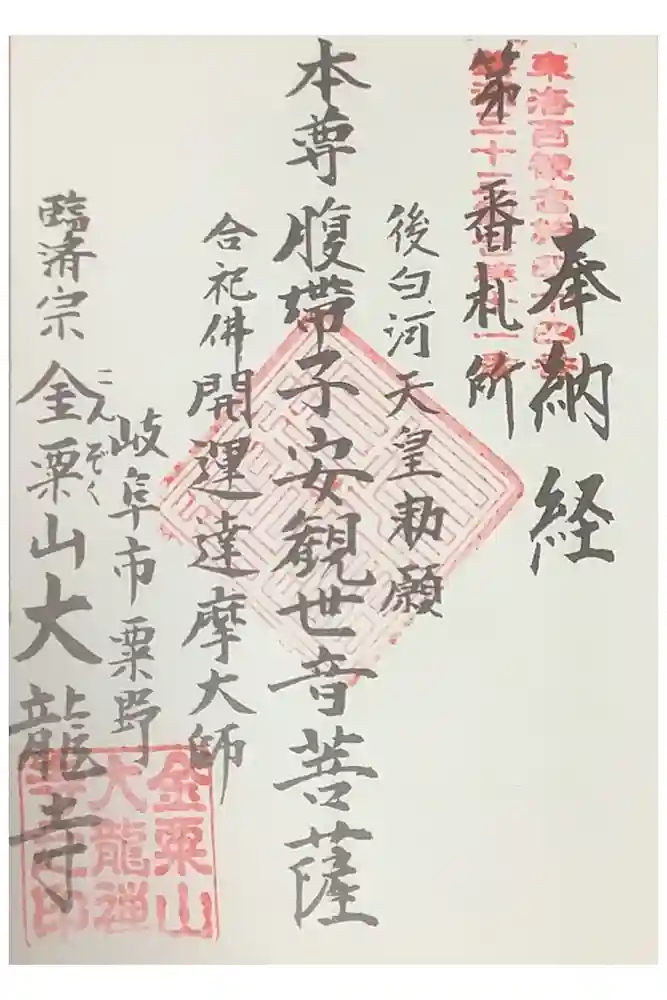 奉納経
第 番札所
後白河天皇勅願
本尊腹帯子安観世音菩薩
合祀佛開運達摩大師
岐阜市粟野
臨済宗金粟山大龍寺
こんぞく
金粟山
大龍禅
寺之印